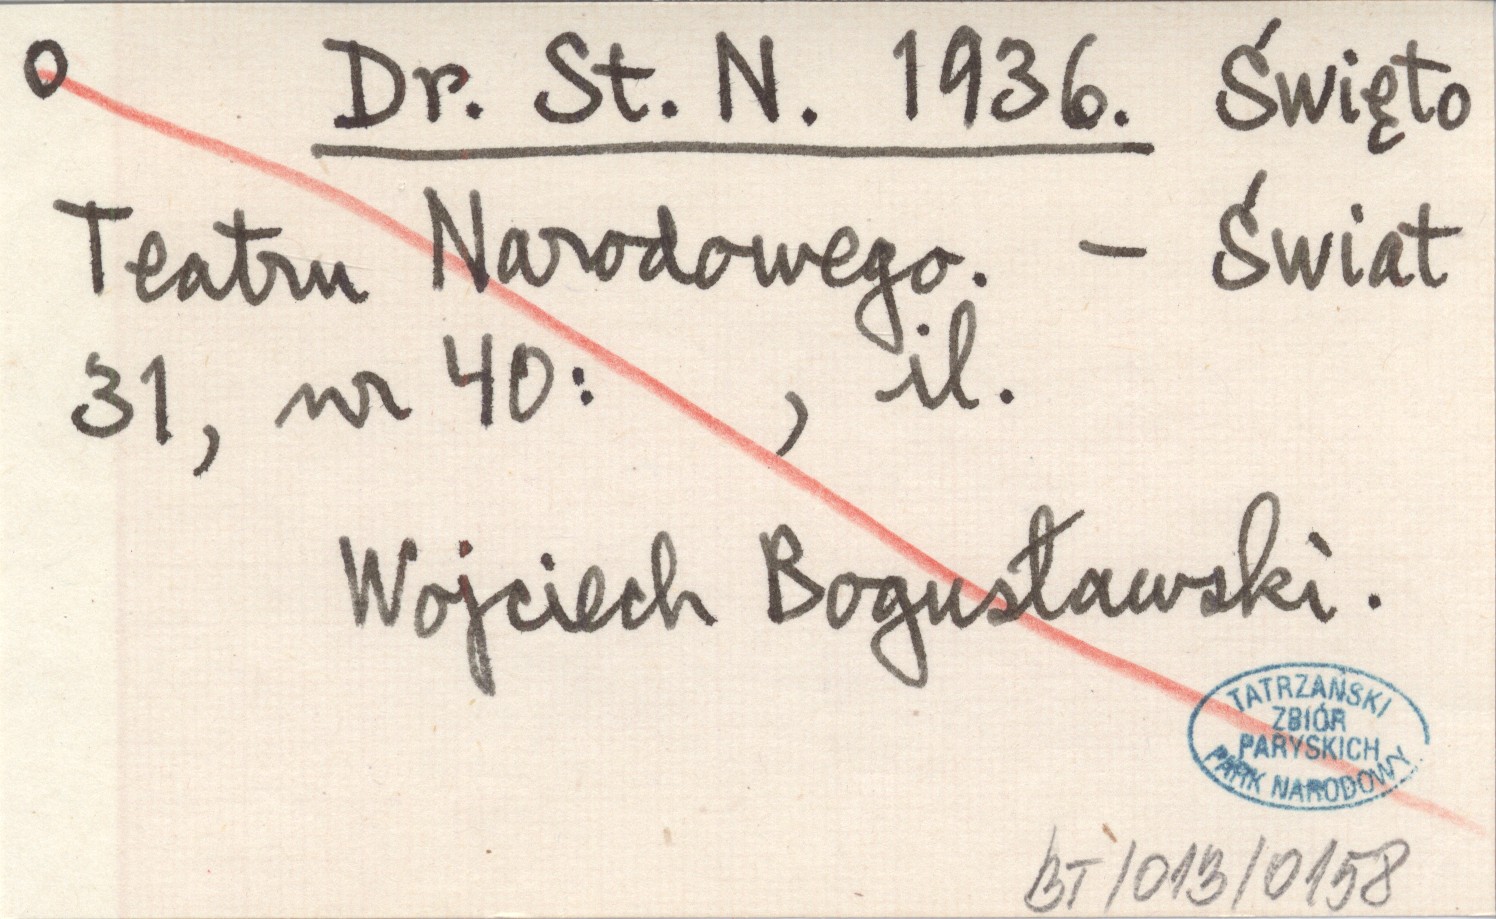 o Dr. St. N. 1936. Święto
Teatru Narodowego. – Świat
31, nr 40: , il.
Wojciech Bogusławski.
TATRZAŃSKI
ZBIÓR
PARYSKICH
PARK NARODOWY
BT/013/0158